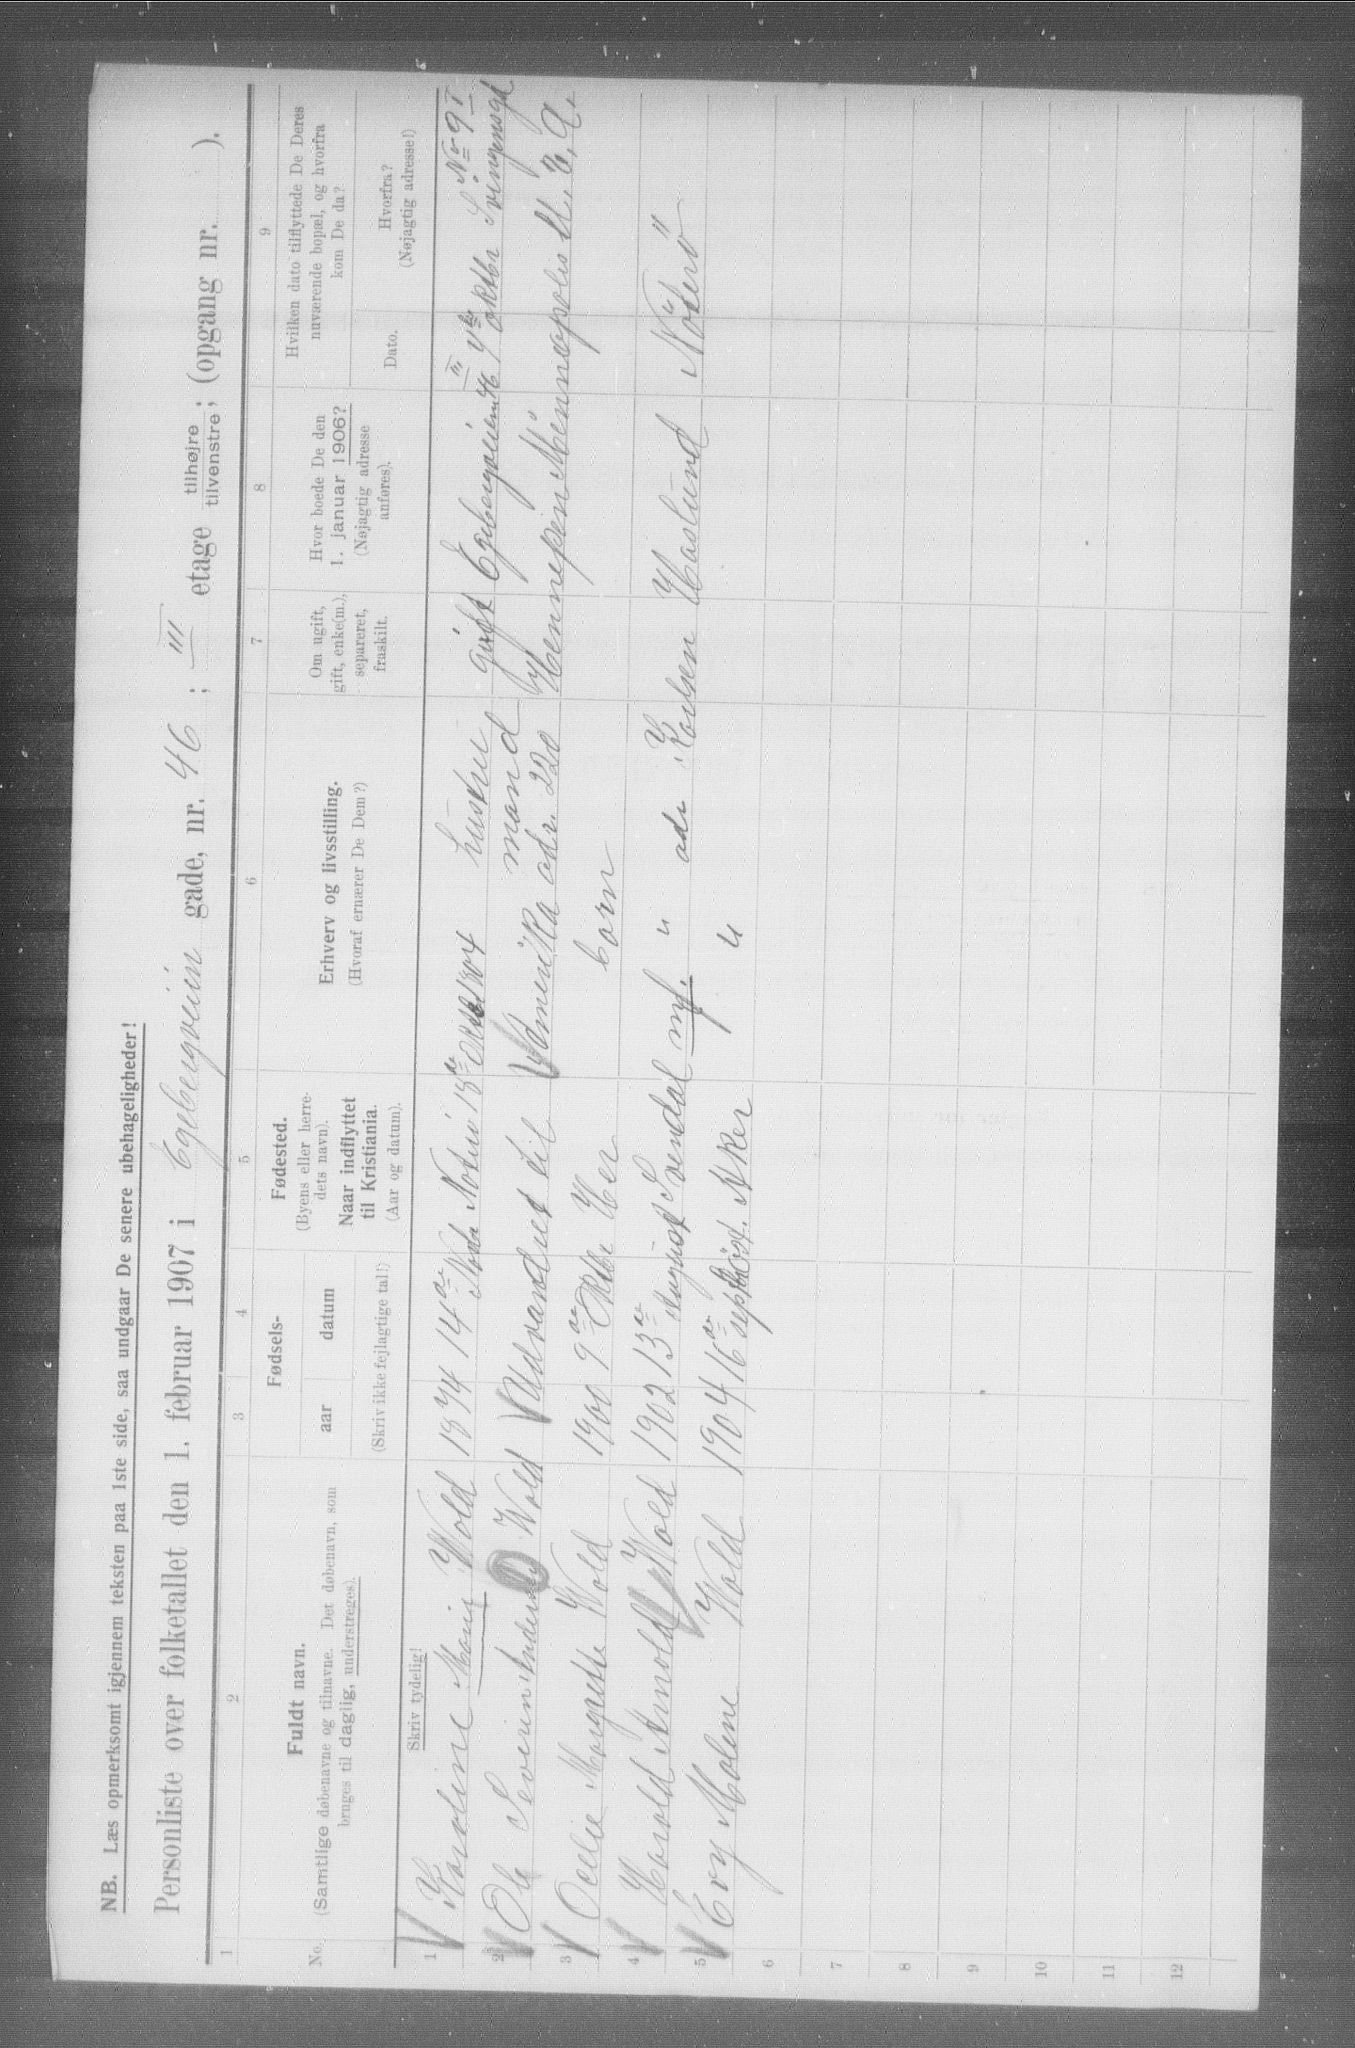 NB. Læs opmerksomt igjennem teksten paa 1ste side, saa undgaar De senere ubehageligheder!
Personliste over folketallet den 1. februar 1907 i Egebergveien gade, nr. 46 ; III etage tilhøjre / tilvenstre ; (opgang nr. ).
1 2 3 4 5 6 7 8 9
No.
Fuldt navn.
(Samtlige døbenavne og tilnavne. Det døbenavn, som
bruges til daglig, understreges).
Fødsels-
aar datum
(Skriv ikke fejlagtige tal!)
Fødested.
(Byens eller herre-
dets navn).
Naar indflyttet
til Kristiania.
(Aar og datum).
Erhverv og livsstilling.
(Hvoraf ernærer De Dem?)
Om ugift,
gift, enke(m.),
separeret,
fraskilt.
Hvor boede De den
1. januar 1906?
(Nøjagtig adresse
anføres).
Hvilken dato tilflyttede De Deres
nuværende bopæl, og hvorfra
kom De da?
Dato.
Hvorfra?
(Nøjagtig adresse!)
Skriv tydelig!
1 Karoline Marie Wold 1874 14de hustru gift Egebergveien 46 III oktbr Svingensgt No 9 I
2 Ole Severin Wold Udvandret til Amerika adr. 220 Hennepin
mand
3 Margrethe Wold 1900 9de Oktbr Her barn
4 Harold Arnold Wold 1902 13de August Svendal " adr Karlsen Haslund Nøterø
5 Wold 1904 16de sept Aker "
6
7
8
9
10
11
12